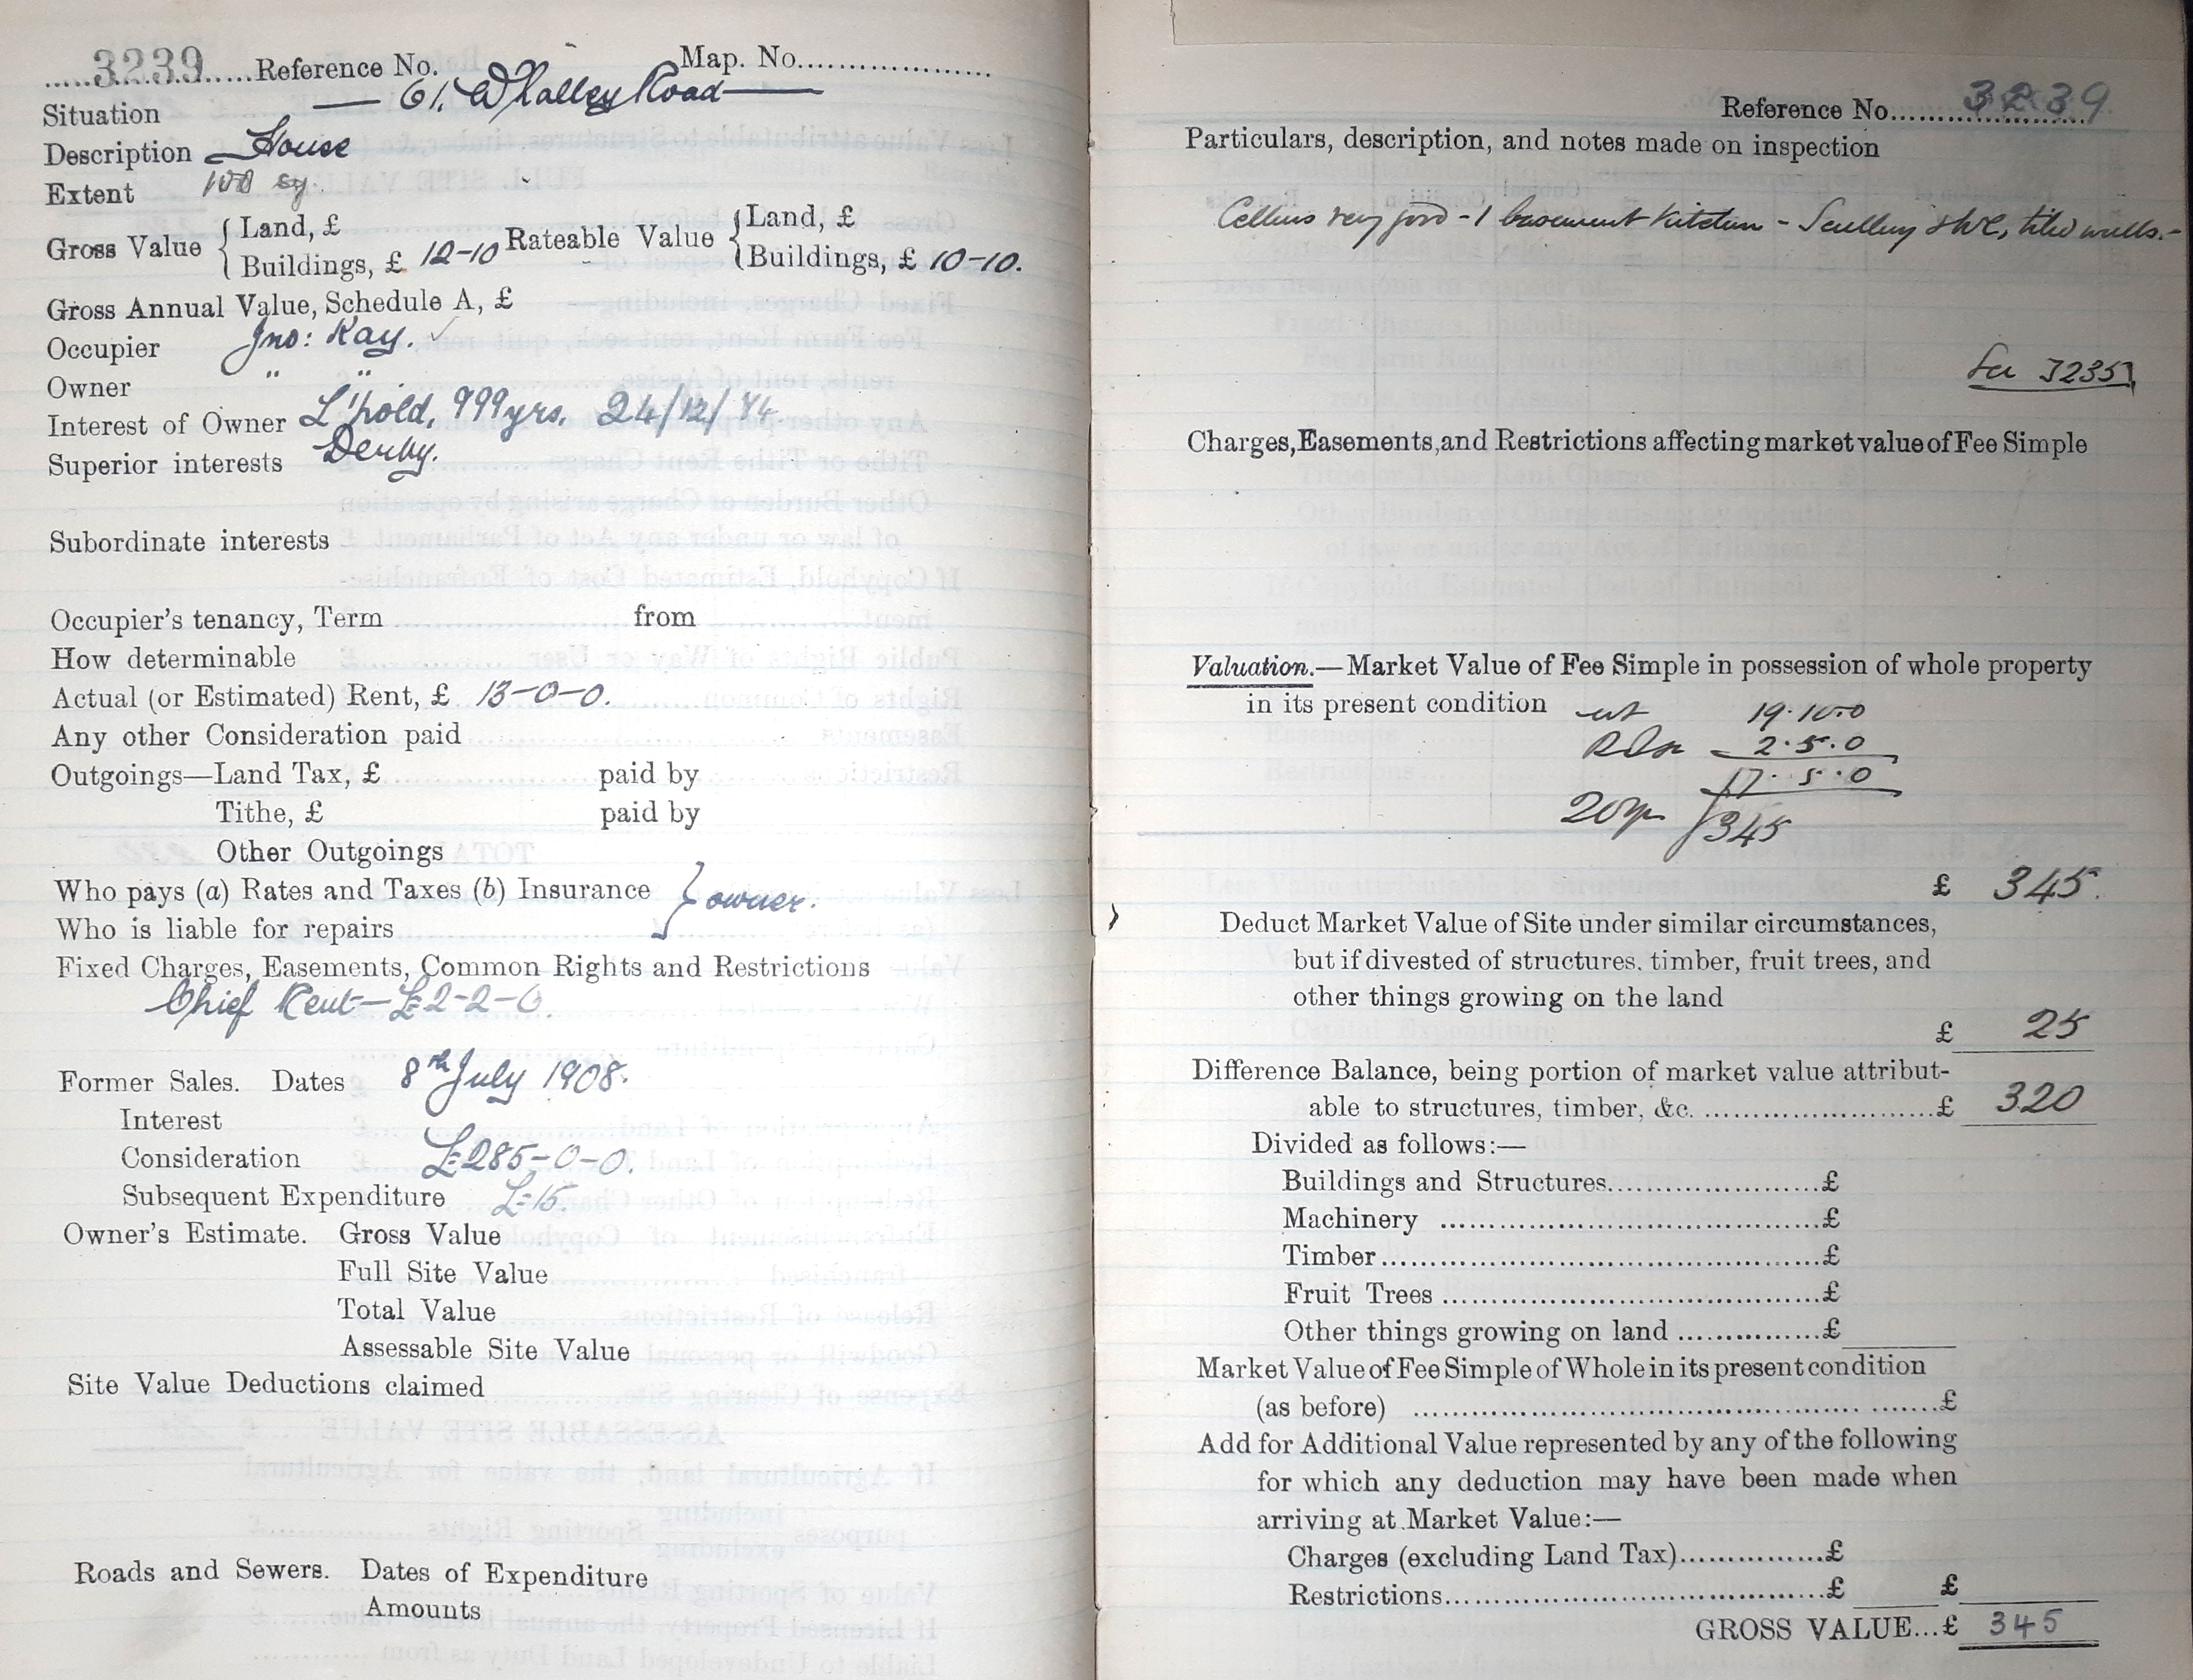 3239 Reference No. Map. No.
Situation — 61, Whalley Road —
Description House
Extent sy.
Gross Value { Land, £ Rateable Value { Land, £
Buildings, £ 12-10 Buildings, £ 10-10.
Gross Annual Value, Schedule A, £
Occupier Jno: Kay. ✓
Owner " "
Interest of Owner L'hold, 999 yrs. 24/12/84.
Superior interests Derby.
Subordinate interests
Occupier's tenancy, Term from
How determinable
Actual (or Estimated) Rent, £ 13-0-0.
Any other Consideration paid
Outgoings—Land Tax, £ paid by
Tithe, £ paid by
Other Outgoings
Who pays (a) Rates and Taxes (b) Insurance } owner.
Who is liable for repairs
Fixed Charges, Easements, Common Rights and Restrictions
Chief Rent—£2-2-0.
Former Sales. Dates 8th July 1908.
Interest
Consideration £285-0-0.
Subsequent Expenditure £15.
Owner's Estimate. Gross Value
Full Site Value
Total Value
Assessable Site Value
Site Value Deductions claimed
Roads and Sewers. Dates of Expenditure
Amounts
Reference No. 3239
Particulars, description, and notes made on inspection
Cellars very good - 1 basement Kitchen - Scullery & WC, tiled walls.-
See 3235
Charges, Easements, and Restrictions affecting market value of Fee Simple
Valuation.—Market Value of Fee Simple in possession of whole property
in its present condition 19.10.0
2.5.0
17.5.0
20yp 345
£ 345.
Deduct Market Value of Site under similar circumstances,
but if divested of structures, timber, fruit trees, and
other things growing on the land
£ 25
Difference Balance, being portion of market value attribut-
able to structures, timber, &c. £ 320
Divided as follows:—
Buildings and Structures £
Machinery £
Timber £
Fruit Trees £
Other things growing on land £
Market Value of Fee Simple of Whole in its present condition
(as before) £
Add for Additional Value represented by any of the following
for which any deduction may have been made when
arriving at Market Value:—
Charges (excluding Land Tax) £
Restrictions £ £
GROSS VALUE...£ 345